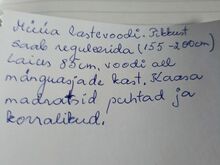 Müüa lastevoodi. Pikkust
saab reguleerida (155-200cm)
Laius 85cm. voodi all
mänguasjade kast. Kaasa
madratsid puhtad ja
korralikud.